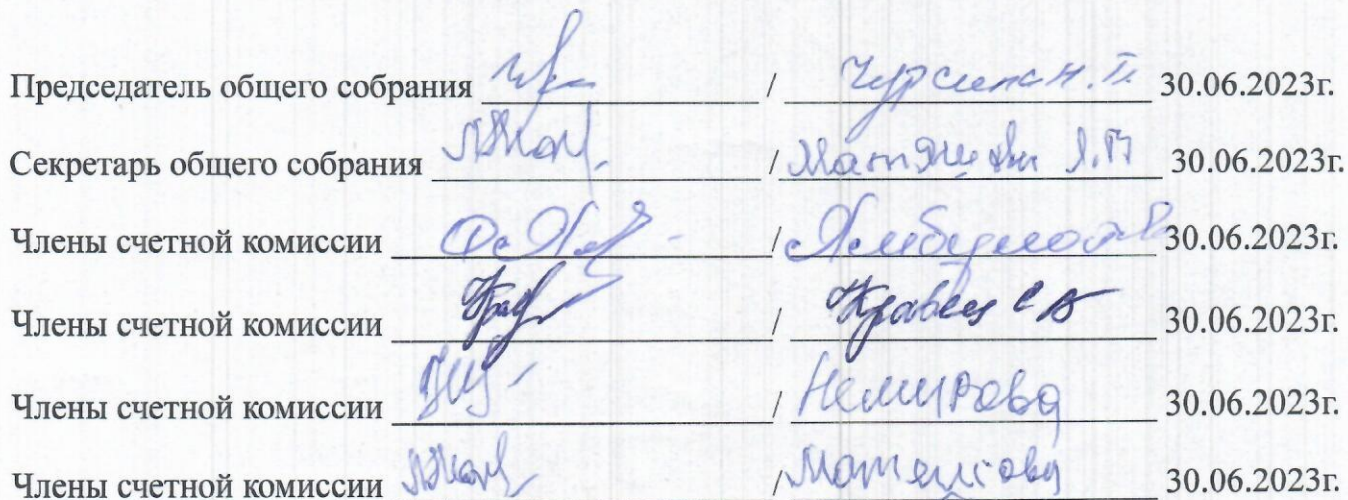 Председатель общего собрания / Чурсина Н. П. 30.06.2023г.
Секретарь общего собрания / 30.06.2023г.
Члены счетной комиссии / 30.06.2023г.
Члены счетной комиссии / Кравец С В 30.06.2023г.
Члены счетной комиссии / Немирова 30.06.2023г.
Члены счетной комиссии / 30.06.2023г.